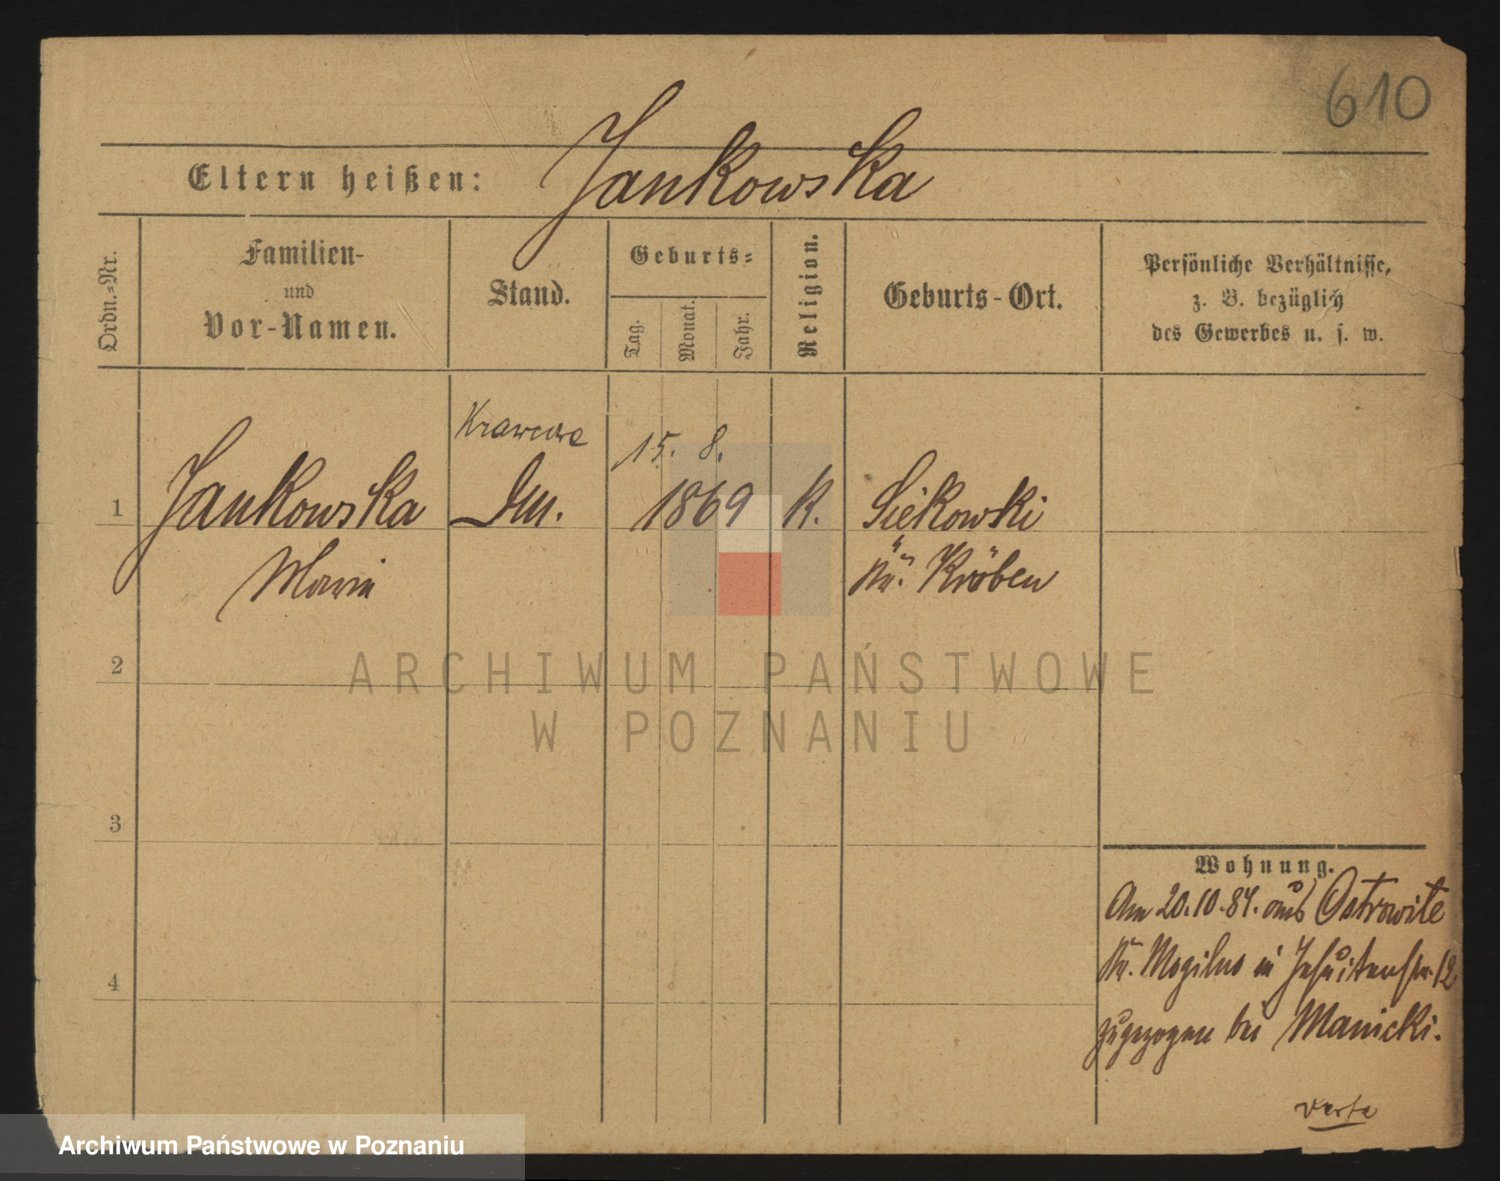 610
Eltern heißen: Jankowska
Ordn.-Nr.
Familien-
und
Vor-Namen.
Stand.
Geburts-
Tag.
Monat.
Jahr.
Religion.
Geburts-Ort.
Persönliche Verhältnisse,
z. B. bezüglich
des Gewerbes u. s. w.
15. 8.
1 Jankowska 1869 K. Siekowski
Marie Kr. Kröben
2
3
4
Wohnung.
Am 20.10.84. aus Ostrowite
Kr. Mogilno in Jesuitenstr. 12
zugezogen bei Manicki.
verte
ARCHIWUM PAŃSTWOWE
W POZNANIU
Archiwum Państwowe w Poznaniu